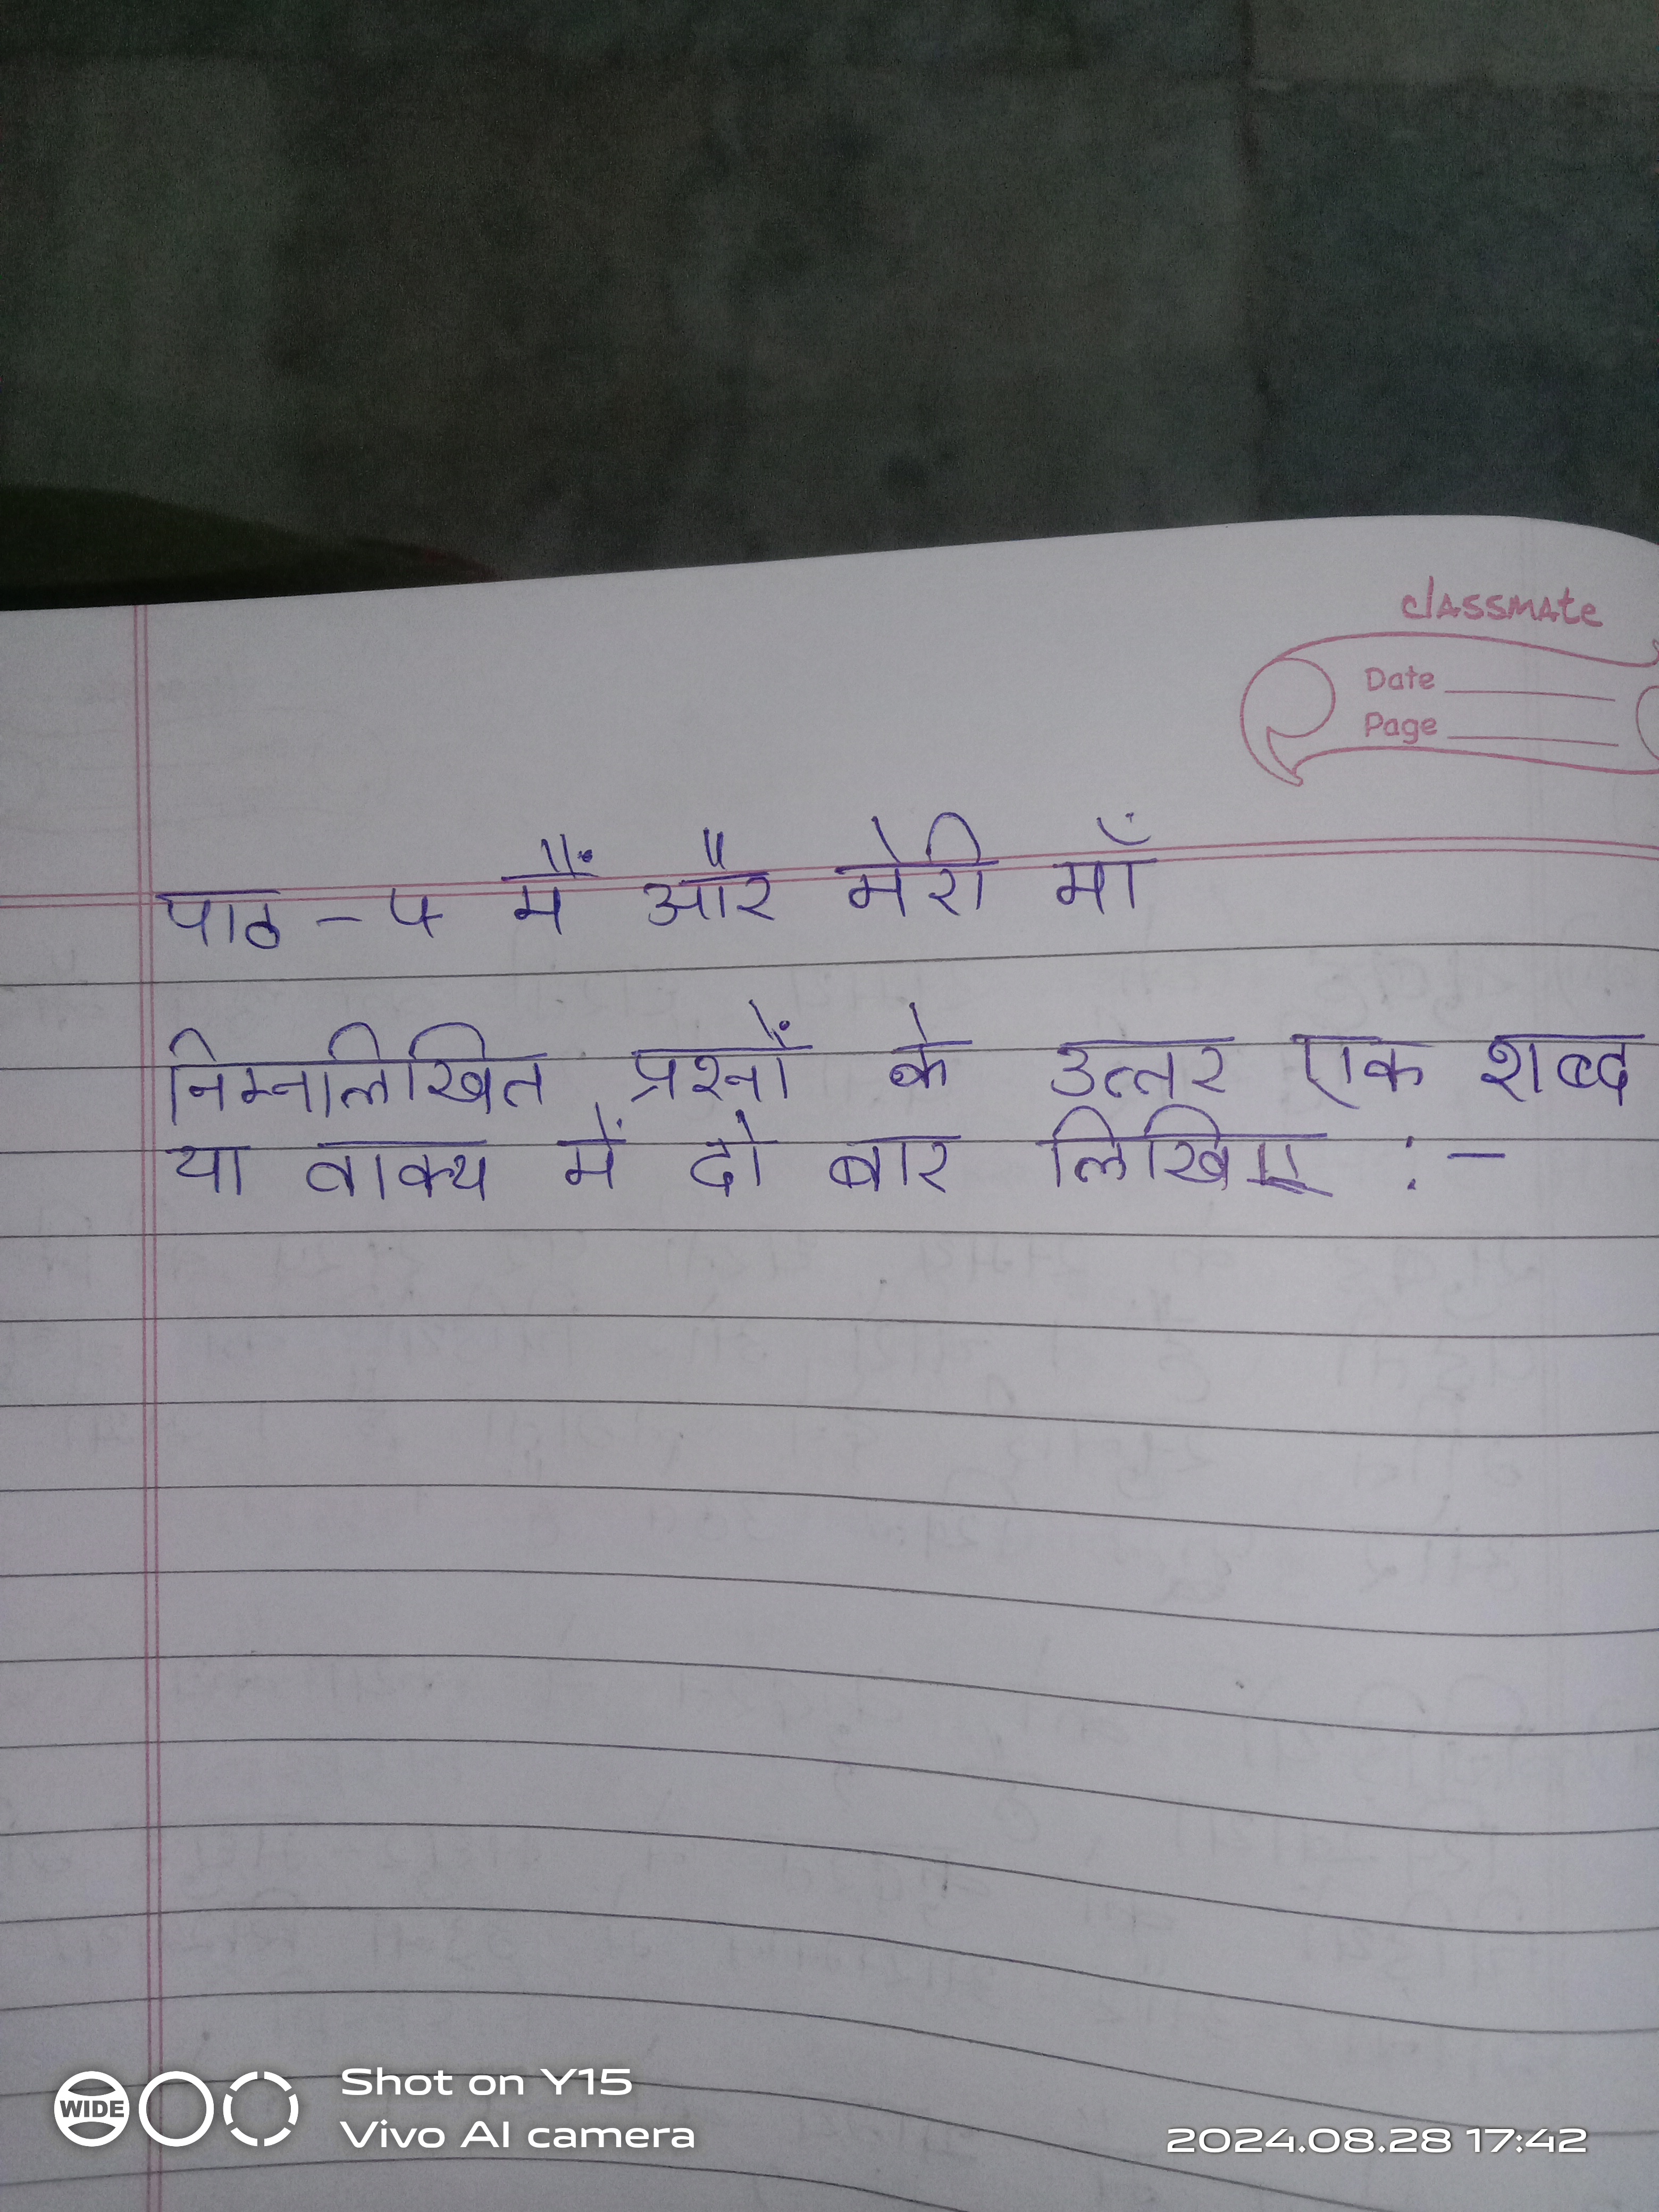 classmate
Date
Page
पाठ - 4 मैं और मेरी माँ
निम्नलिखित प्रश्नों के उत्तर एक शब्द
या वाक्य में दो बार लिखिए :-
WIDE
Shot on Y15
Vivo AI camera
2024.08.28 17:42